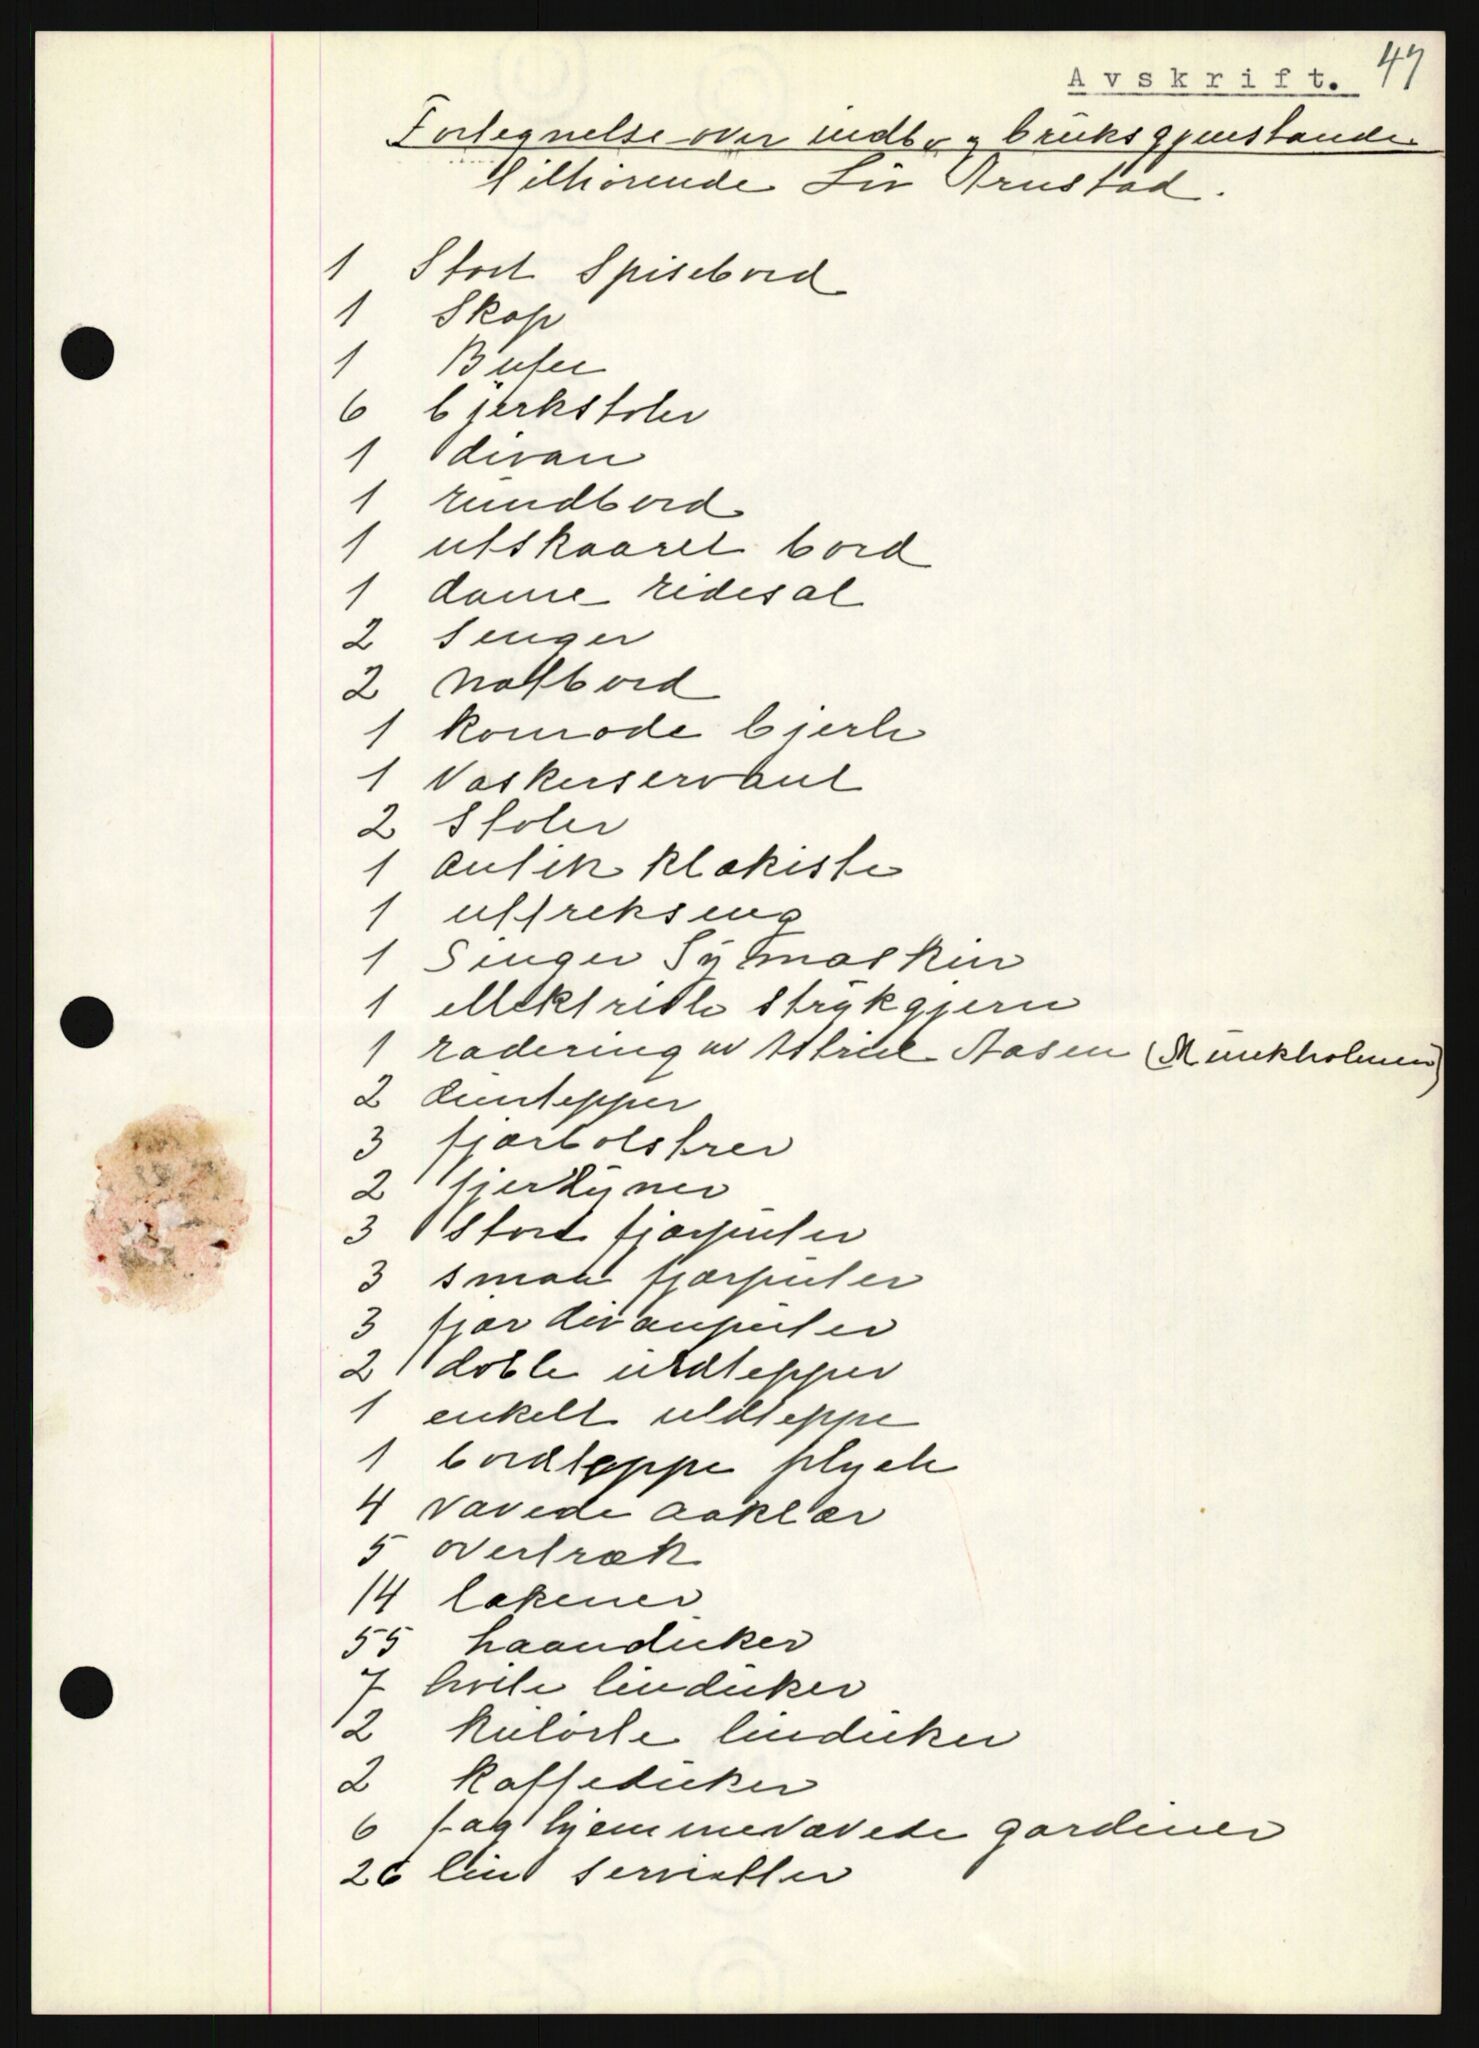 Avskrift. 47
Fortegnelse over indb. og bruksgjenstande
tilhørende Liv Arnstad.
1 Stort Spisebord
1 Skap
1 Bufee
6 bjerkstoler
1 divan
1 rundbord
1 utskaaret bord
1 dame ridesal
2 Senger
2 natbord
1 komode bjerk
1 Vaskeservant
2 Stoler
1 antik klækiste
1 uttrekseng
1 Singer Symaskin
1 ellektrisk strykgjern
1 radering av Astrid Aasen (Munkholmen)
2 duntepper
3 fjærbolstrer
2 fjerdyner
3 Store fjærputer
3 smaa fjærputer
3 fjær divanputer
2 doble uldtepper
1 enkelt uldteppe
1 bordteppe plysh
4 vævede aaklær
5 overtræk
14 lakener
55 haanduker
7 hvite linduker
2 kulørte linduker
2 kaffeduker
6 fag hjemmevævede gardiner
26 lin servietter